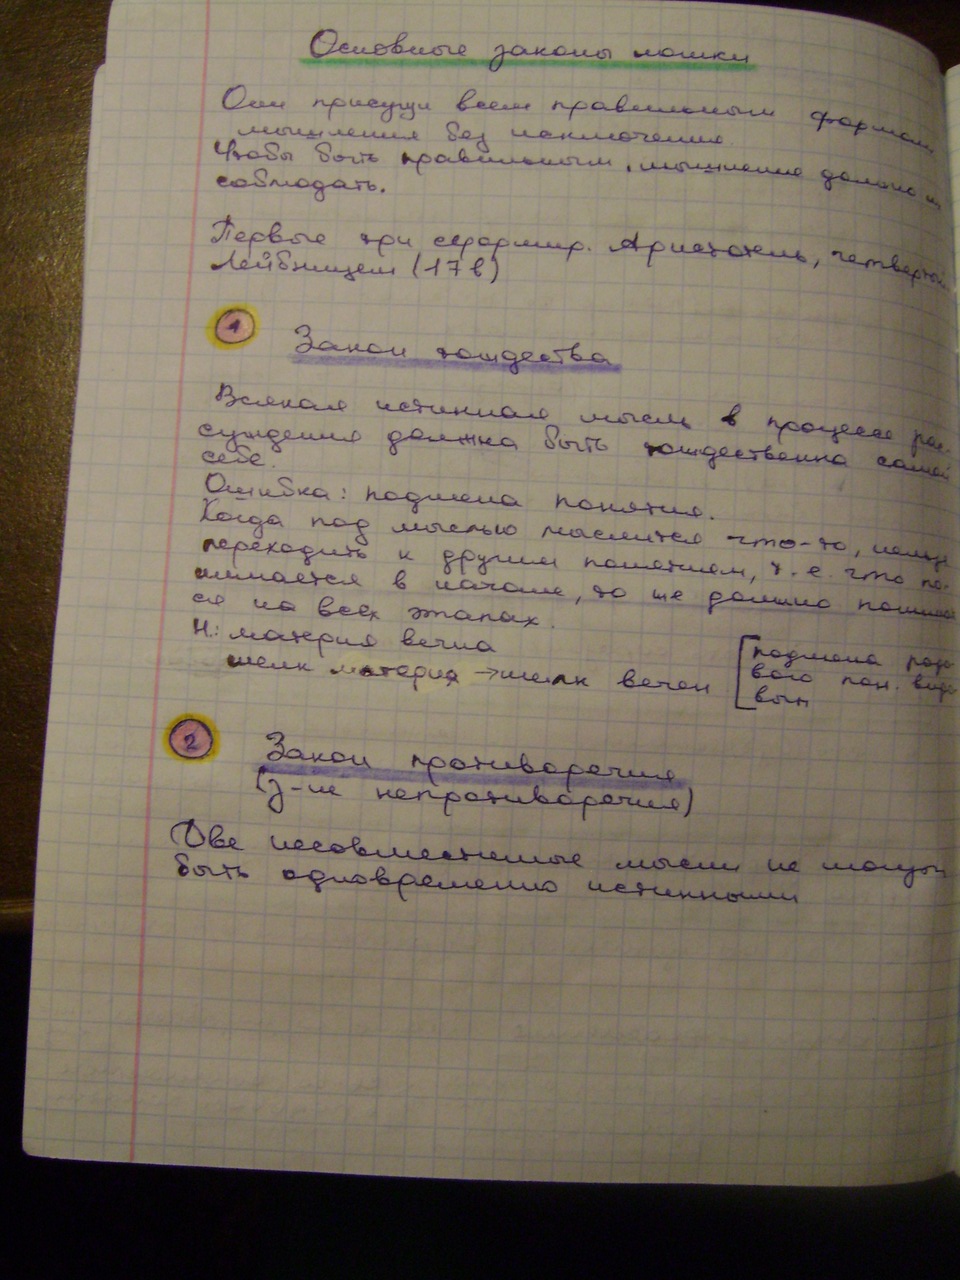 Основные законы логики
Они присущи всем правильным формам
мышления без исключения.
Чтобы быть правильным, мышление должно их
соблюдать.
Первые три сформир. Аристотель, четвертый
Лейбницем (17 в)
1
Закон тождества
Всякая истинная мысль в процессе рас-
суждения должна быть тождественна самой
себе.
Ошибка: подмена понятия.
Когда под мыслью мыслится что-то, нельзя
переходить к другим понятием, т.е. что по-
нимается в начале, то же должно понимать
ся на всех этапах.
Н: материя вечна
шелк материя → шелк вечен
подмена родо
вого пон. видо
вым
2
Закон противоречия
(з-не непротиворечия)
Две несовместимые мысли не могут
быть одновременно истинными